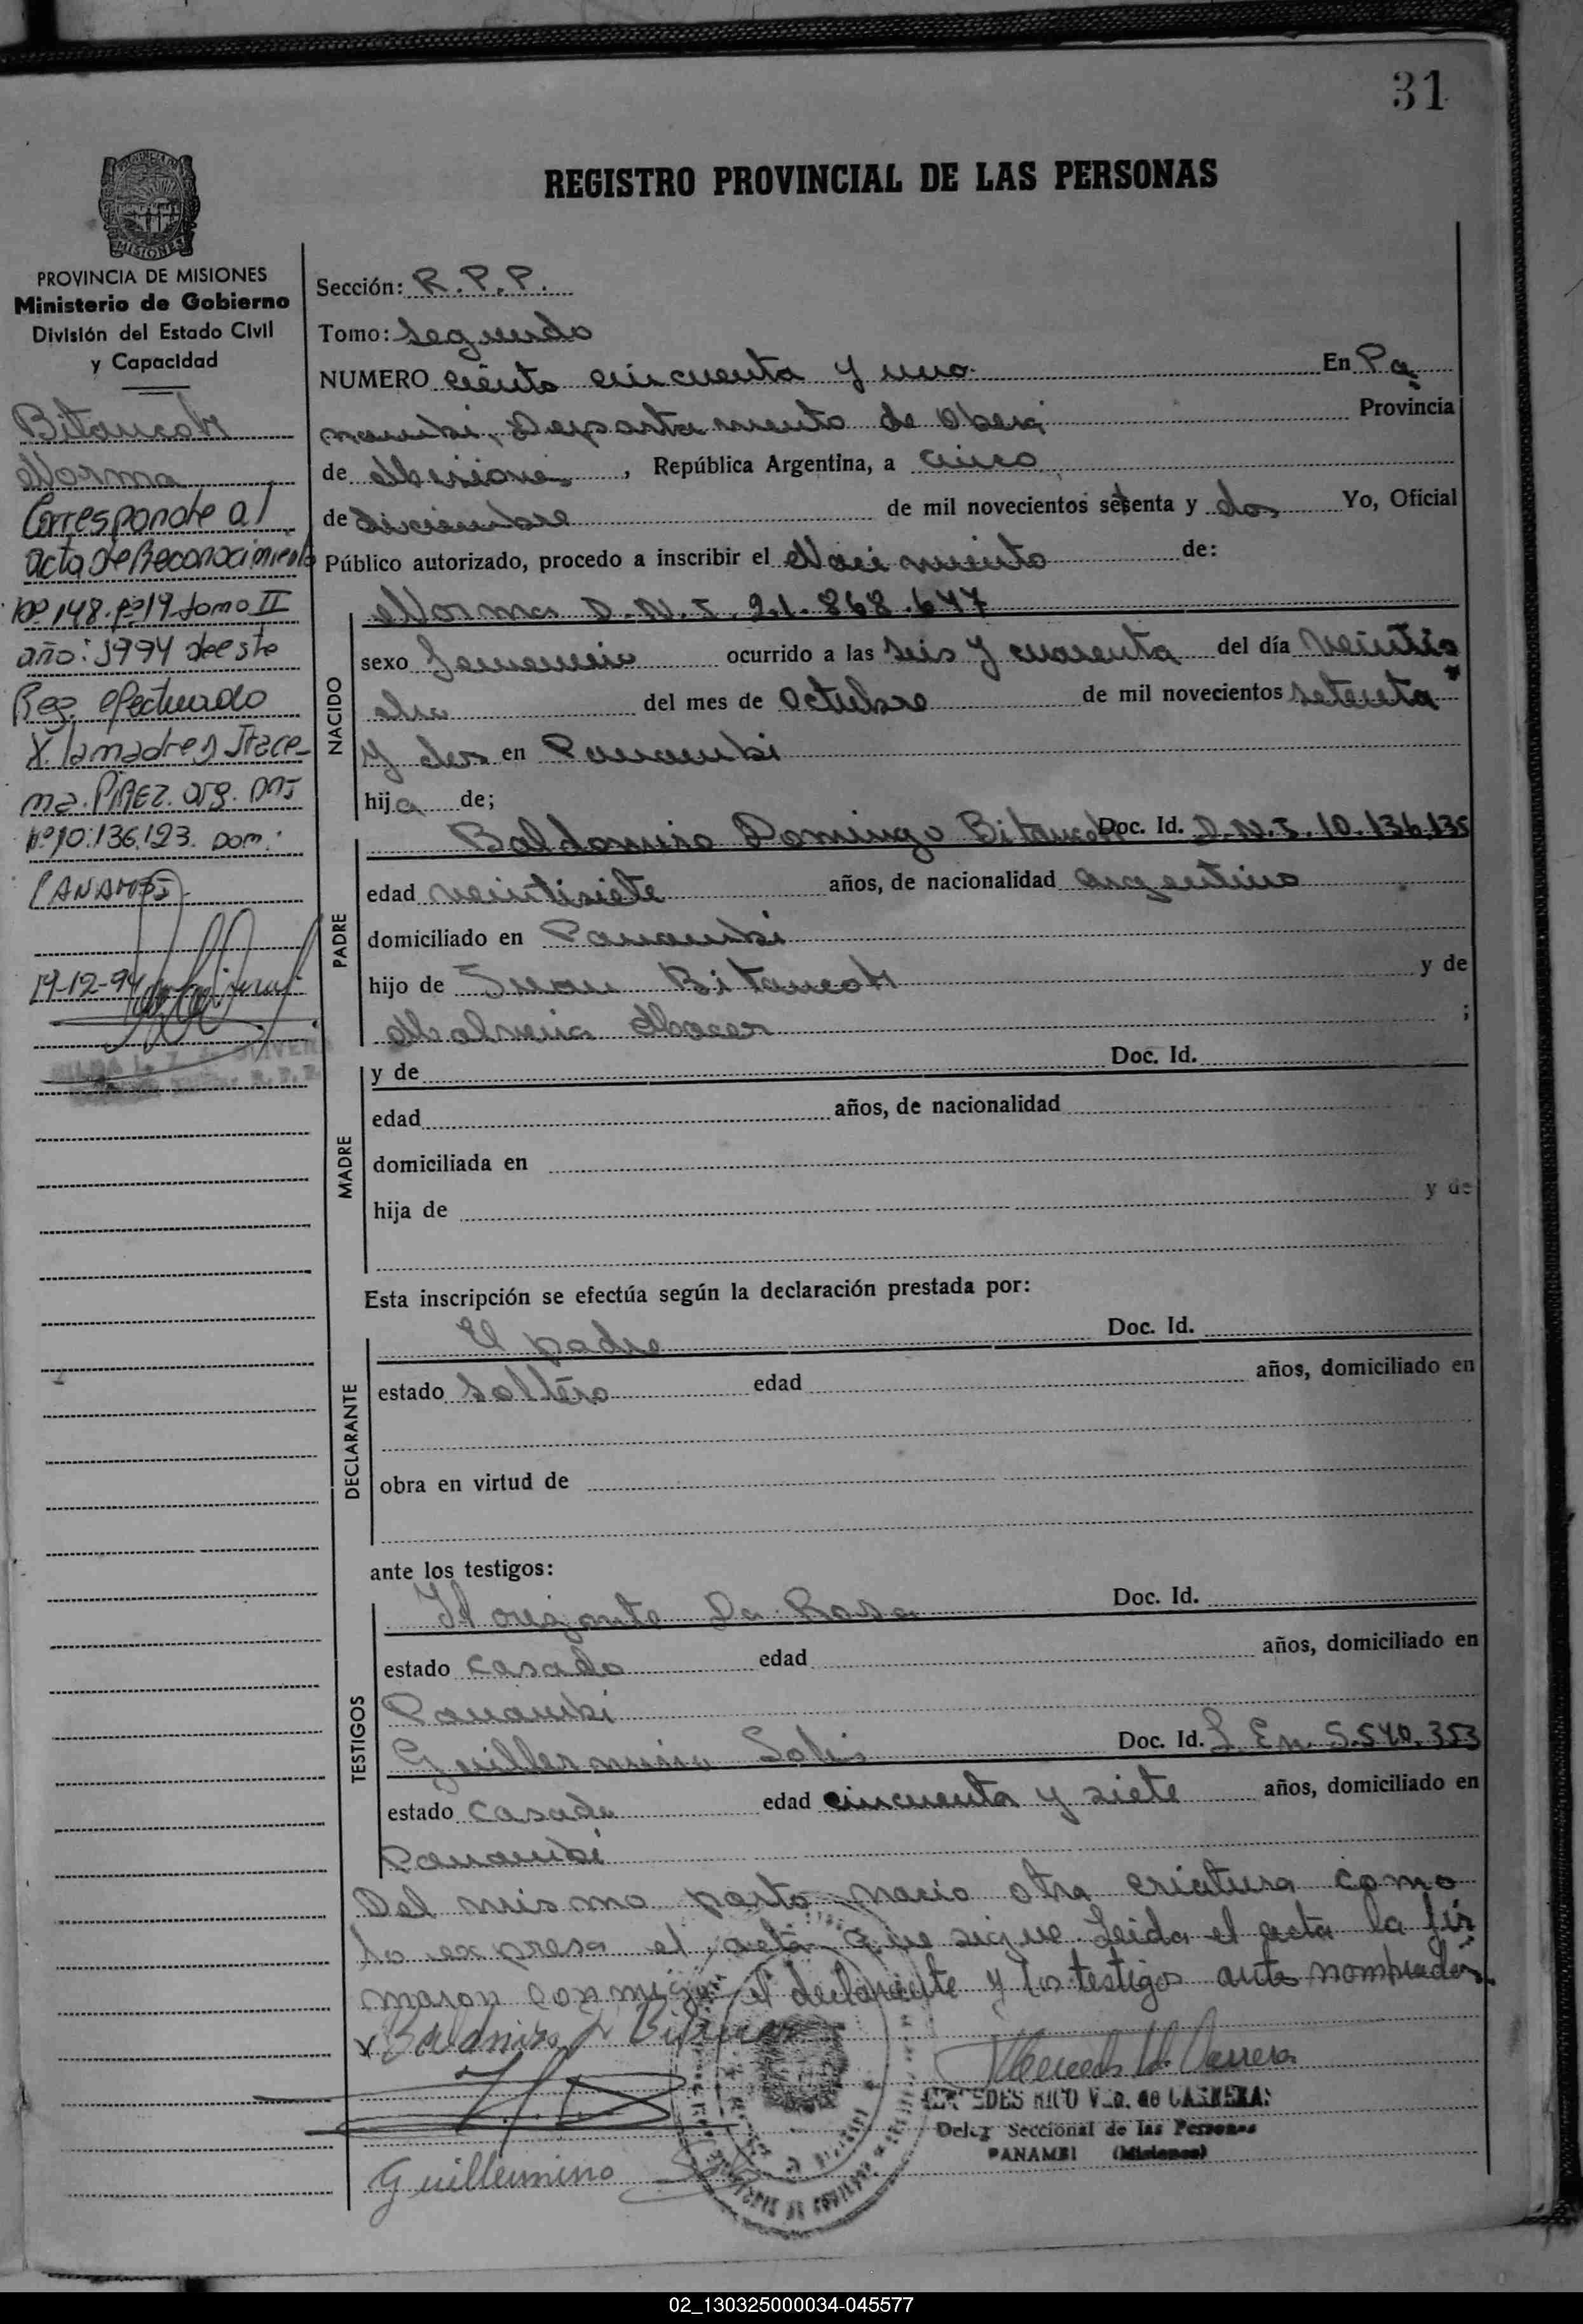 31
REGISTRO PROVINCIAL DE LAS PERSONAS
MISIONES
PROVINCIA DE MISIONES
Ministerio de Gobierno
División del Estado Civil
y Capacidad
Bitancort
Norma
Corresponde al
acta de Reconocimiento
Nº 148. Fº 19 tomo II
año: 1994 de este
Reg. efectuado
X. la madre
PIREZ. arg. DNI
Nº 10.136.123. Dom:
PANAMBI
19-12-94
Sección: R.P.P.
Tomo: Segundo
NUMERO ciento cincuenta y uno En Pa
nambi, Departamento de Oberá Provincia
de Misiones, República Argentina, a cinco
de diciembre de mil novecientos setenta y dos Yo, Oficial
Público autorizado, procedo a inscribir el Nacimiento de:
NACIDO
Norma D.N.I. 21.868.647
sexo femenino ocurrido a las seis y cuarenta del día veintio
cho del mes de Octubre de mil novecientos setenta
y dos en Panambi
hija de;
PADRE
Baldomiro Domingo Bitancort Doc. Id. D.N.I. 10.136.135
edad veintisiete años, de nacionalidad argentino
domiciliado en Panambi
hijo de Juan Bitancort y de
;
MADRE
y de Doc. Id.
edad años, de nacionalidad
domiciliada en
hija de y de
Esta inscripción se efectúa según la declaración prestada por:
DECLARANTE
El padre Doc. Id.
estado soltero edad años, domiciliado en
obra en virtud de
ante los testigos:
TESTIGOS
Da Rosa Doc. Id.
estado casado edad años, domiciliado en
Panambi
Guillermino Solis Doc. Id. L. En. 5.540.353
estado casado edad cincuenta y siete años, domiciliado en
Panambi
Del mismo parto nacio otra criatura como
lo expresa el acta que sigue Leida el acta la fir
maron conmigo el declarante y los testigos antes nombrados
Guillermino
MERCEDES RICO Vda. de CARRERA
Deleg Seccional de las Personas
PANAMBI (Misiones)
02_130325000034-045577